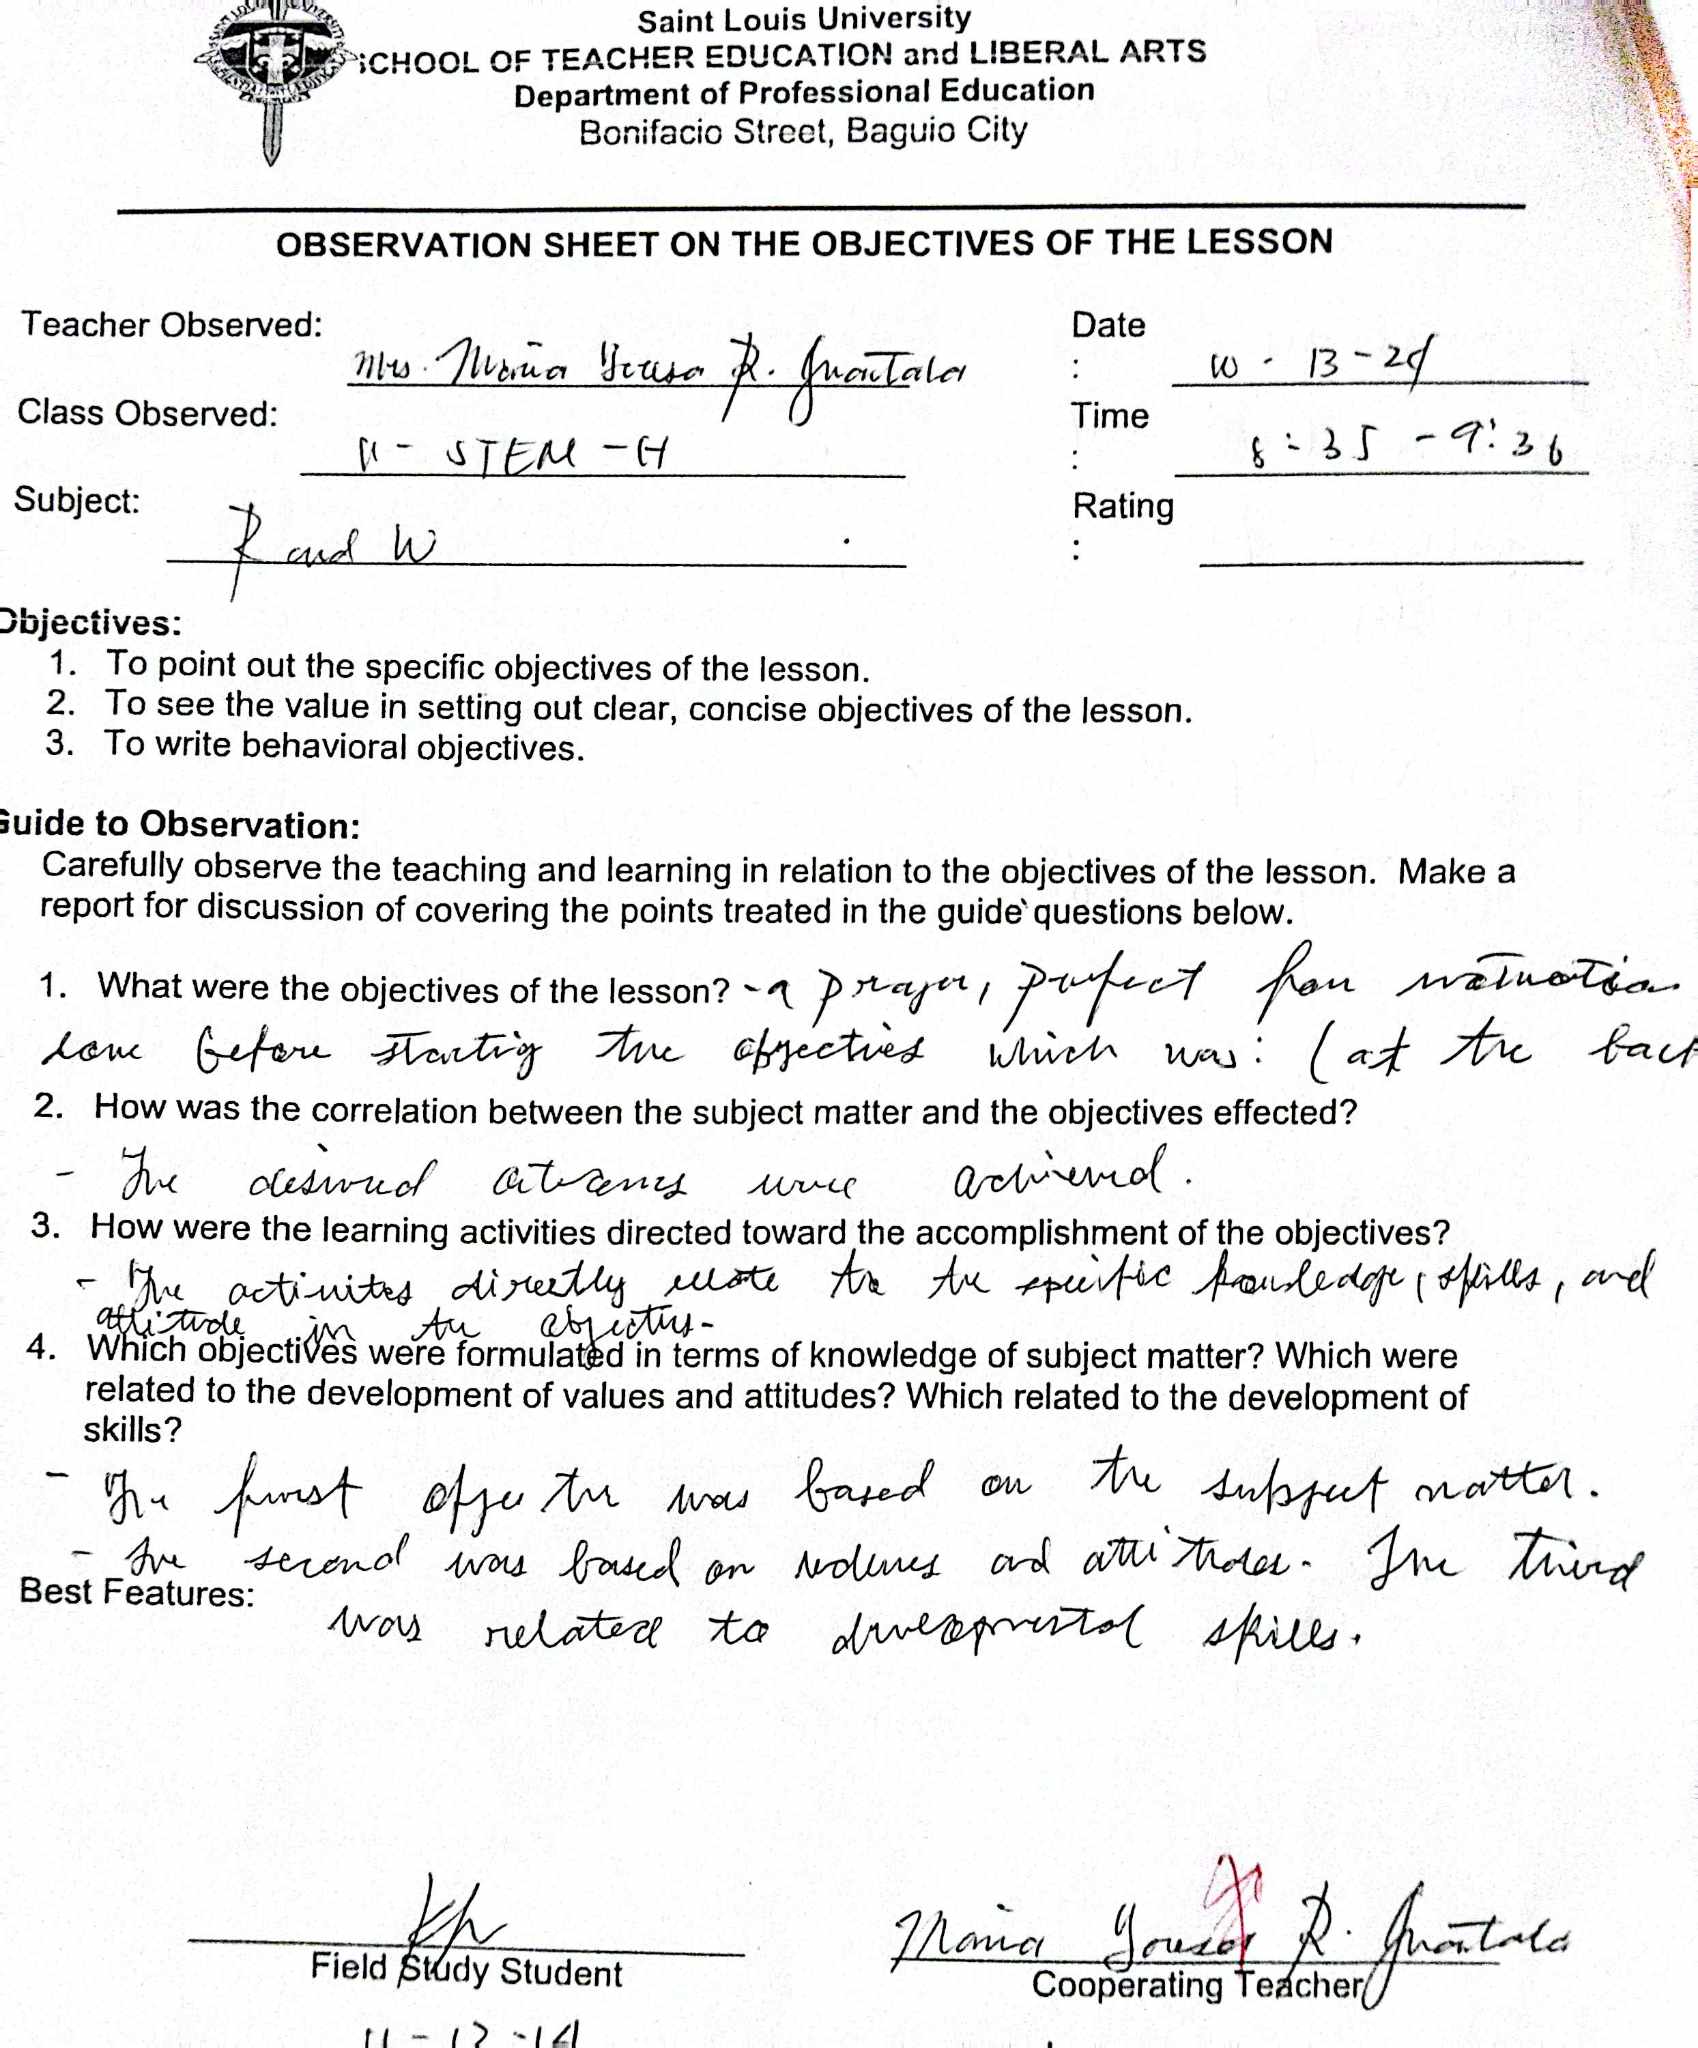 Saint Louis University
SCHOOL OF TEACHER EDUCATION and LIBERAL ARTS
Department of Professional Education
Bonifacio Street, Baguio City
OBSERVATION SHEET ON THE OBJECTIVES OF THE LESSON
Teacher Observed: Mrs. Maria R. Date : 10 - 13 - 24
Class Observed: 11 - STEM - H Time : 8:35 - 9:36
Subject: R and W Rating :
Objectives:
1. To point out the specific objectives of the lesson.
2. To see the value in setting out clear, concise objectives of the lesson.
3. To write behavioral objectives.
Guide to Observation:
Carefully observe the teaching and learning in relation to the objectives of the lesson. Make a
report for discussion of covering the points treated in the guide questions below.
1. What were the objectives of the lesson? - a prayer,
done before starting the objectives which was: (at the back
2. How was the correlation between the subject matter and the objectives effected?
- The desired were achieved.
3. How were the learning activities directed toward the accomplishment of the objectives?
- The activites directly relate to the specific knowledge, skills, and
attitude in the
4. Which objectives were formulated in terms of knowledge of subject matter? Which were
related to the development of values and attitudes? Which related to the development of
skills?
- The first was based on the subject matter.
- The second was based on and attitudes. The third
Best Features:
was related to skills.
Field Study Student
Maria R.
Cooperating Teacher